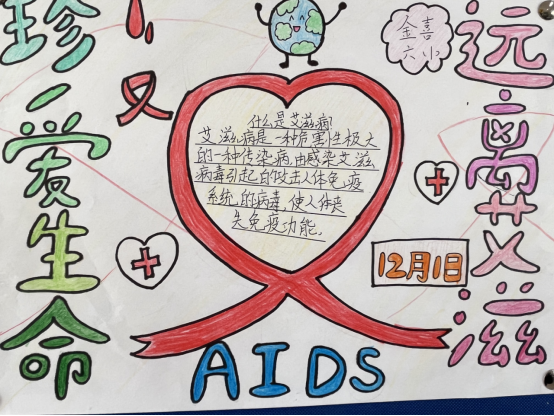 珍爱生命
金喜
六小
远离艾滋
什么是艾滋病?
艾滋病是一种危害性极大
的一种传染病,由感染艾滋
病毒引起,的攻击人体免疫
系统,的病毒,使人体丧
失免疫功能.
12月1日
AIDS